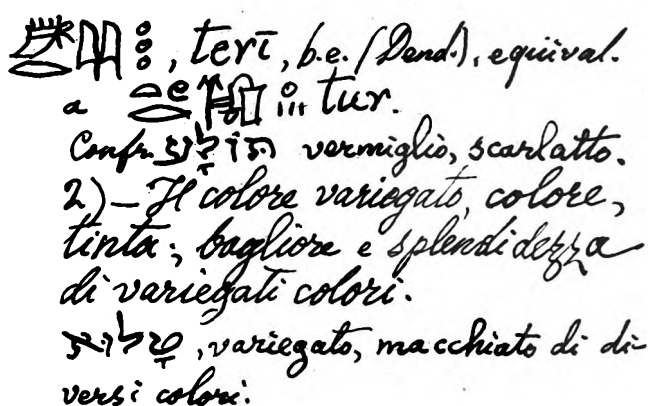 , teri̅, b.e. (Dend.), equival.
a tur.
Confr. תולָע vermiglio, scarlatto.
2) — Il colore variegato, colore,
tinta; bagliore e splendidezza
di variegati colori.
טָלוא, variegato, macchiato di di-
versi colori.